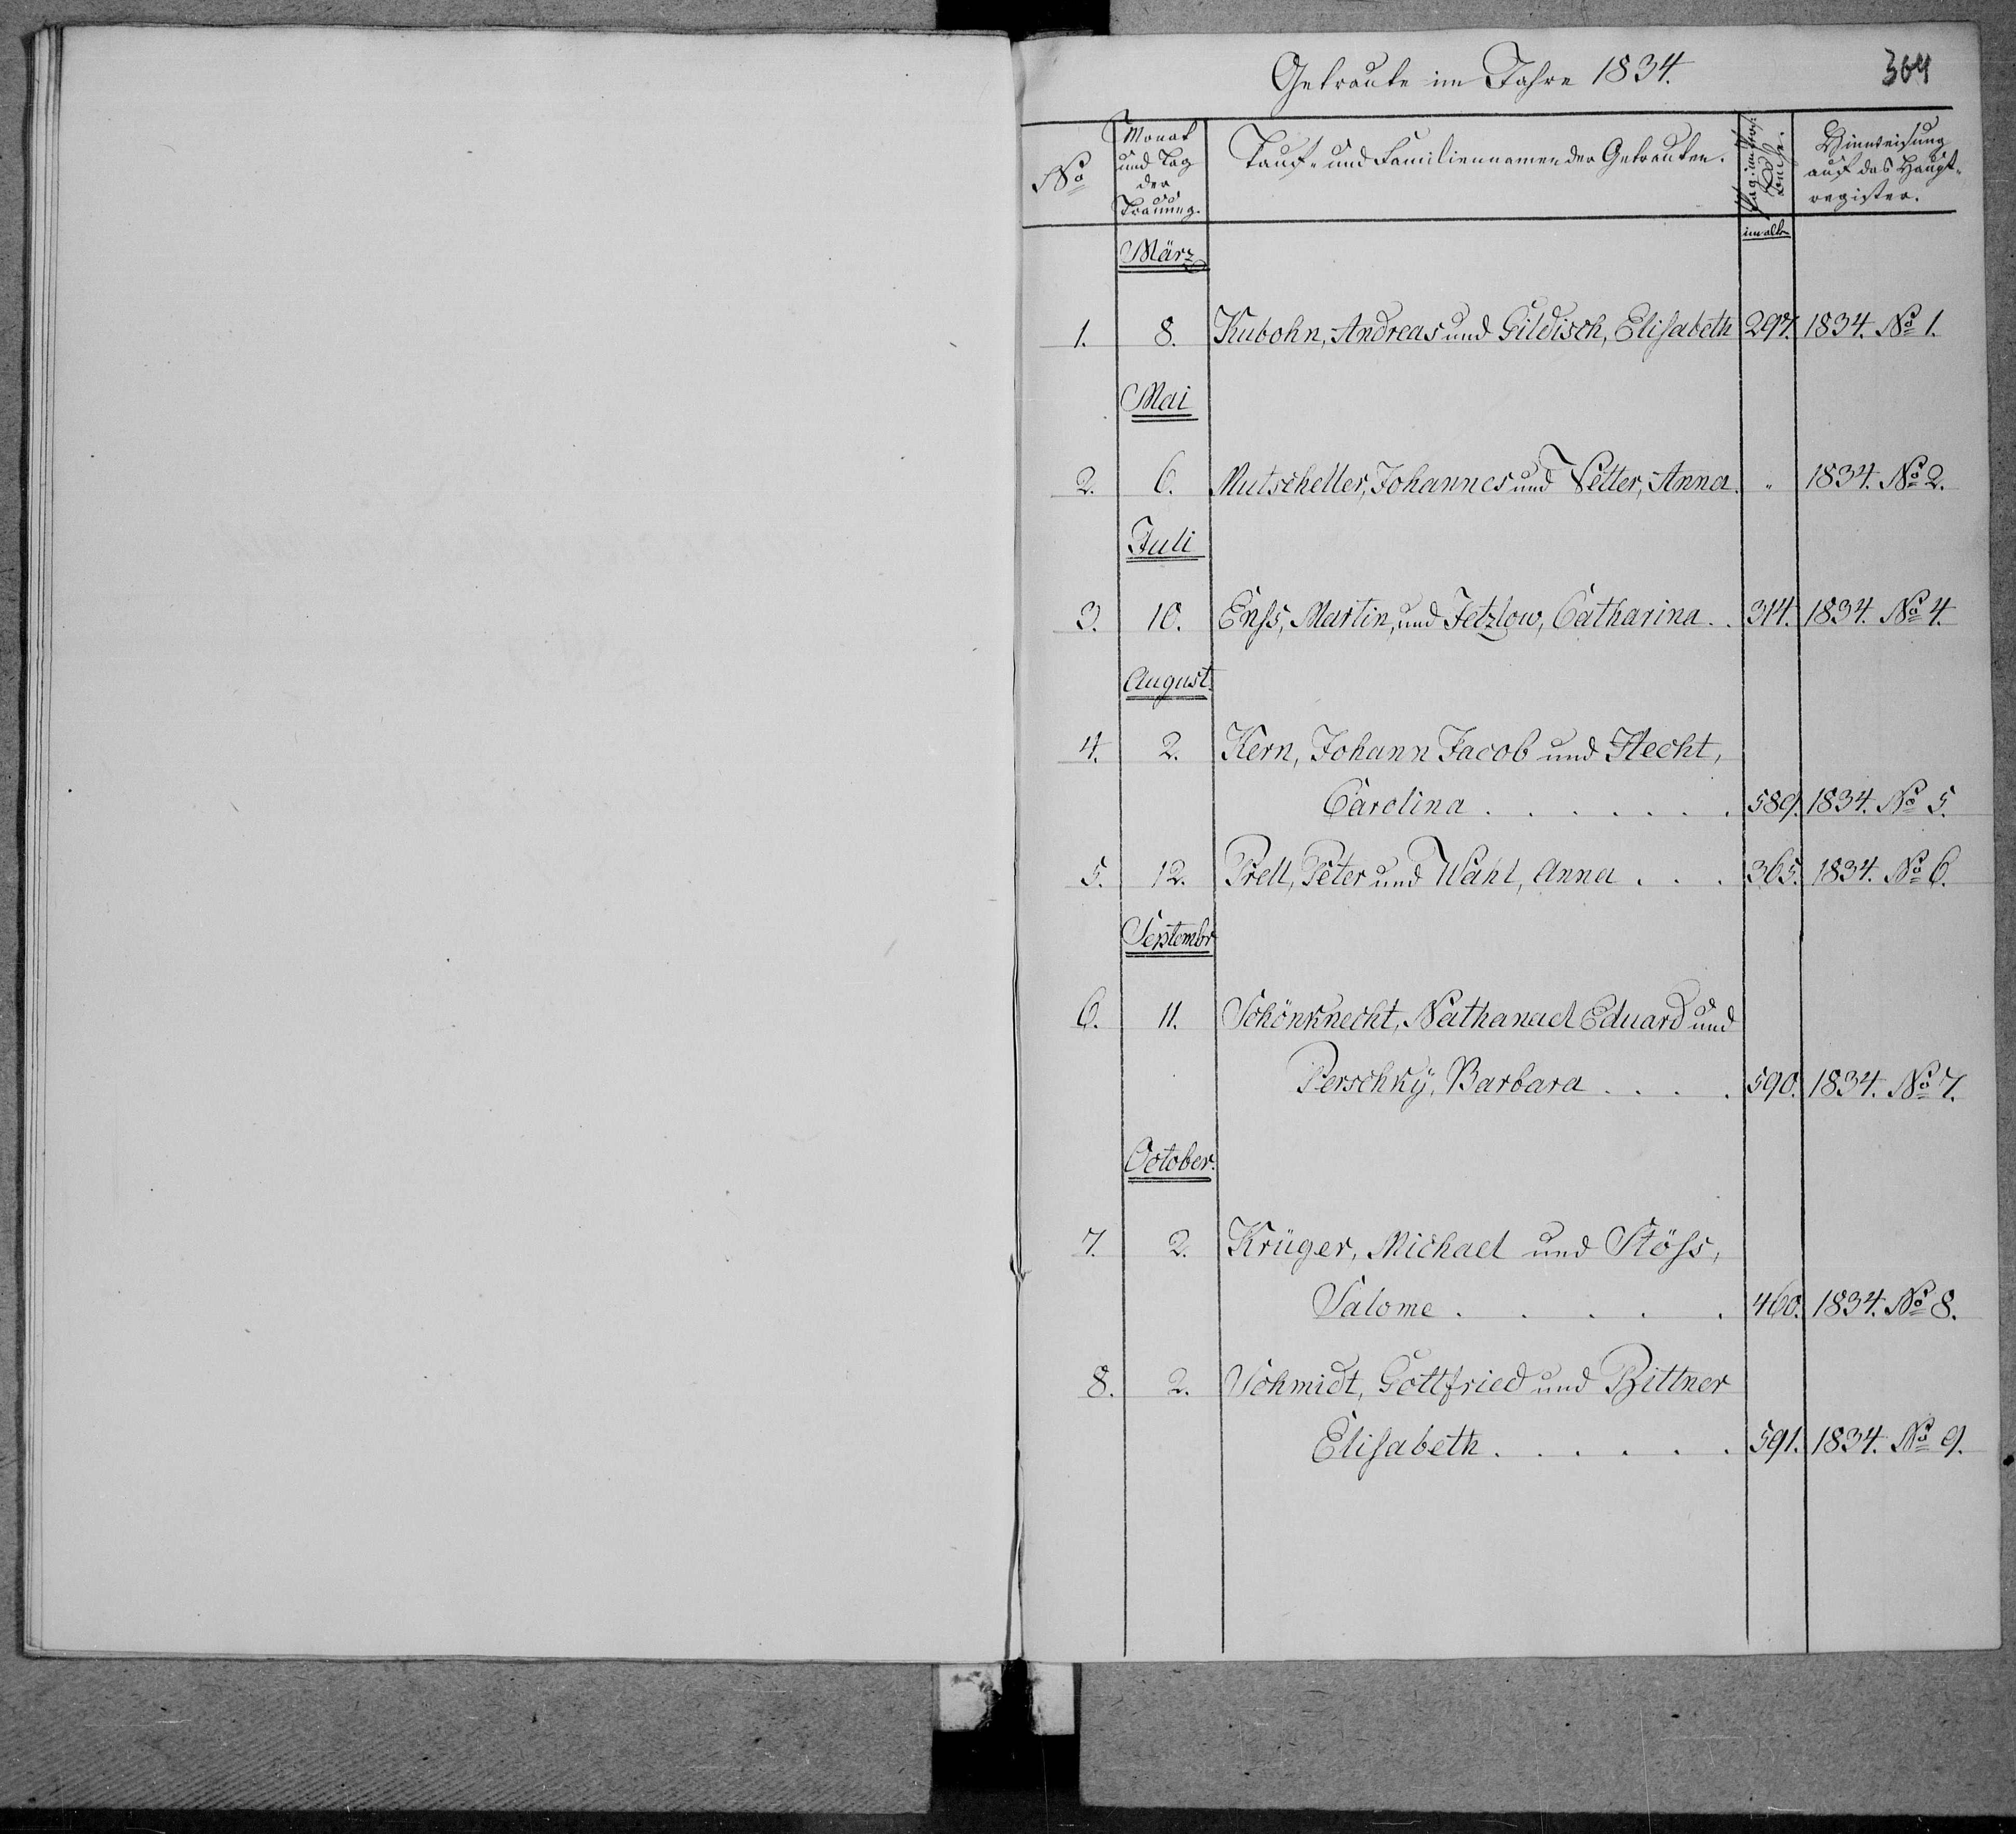 Getraute im Jahre 1834.
364
No
Monat und Tag der Trauung.
Tauf- und Familiennamen der Getrauten.
Hinweisung auf das Haupt-register.
im alt
März
1. 8. Kubohn, Andreas und Gildisch, Elisabeth 297. 1834. No 1.
Mai
2. 6. Mutscheller, Johannes und Vetter, Anna. " 1834. No 2.
Juli
3. 10. Enss, Martin, und Jetzlow, Catharina. . 314. 1834. No 4.
August.
4. 2. Kern, Johann Jacob und Hecht,
Carolina . . . . . . 589. 1834. No 5.
5. 12. Prell, Peter und Wahl, Anna . . . 365. 1834. No 6.
Septembr
6. 11. Schönknecht, Nathanael Eduard und
Perschkÿ, Barbara . . . . 590. 1834. No 7.
October.
7. 2. Krüger, Michael und Stöss,
Salome . . . . . 460. 1834. No 8.
8. 2. Schmidt, Gottfried und Bittner
Elisabeth . . . . . . 591. 1834. No 9.